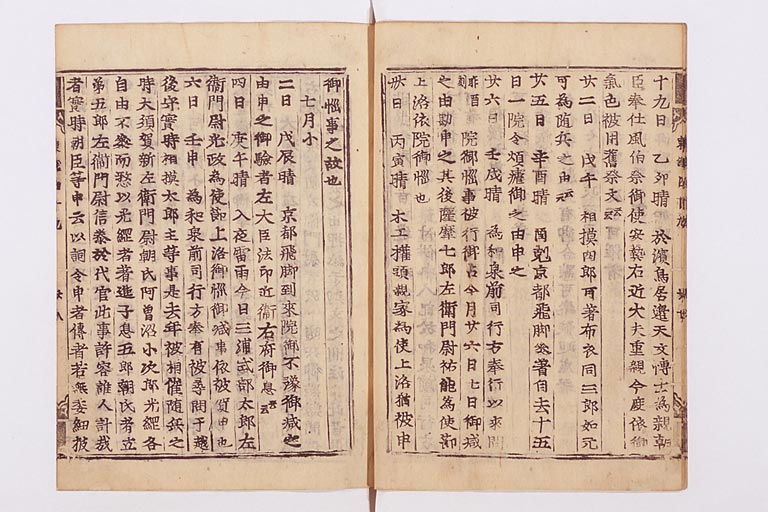 十九日 乙卯晴 於濱鳥居邊天文博士為親朝
臣奉仕風伯祭御使安藝右近大夫重親今度依御
氣色被用舊祭文云云
廿二日 戊午 相摸四郎可著布衣同三郎如元
可為随兵之由云云
廿五日 辛酉晴 酉剋京都飛脚参著自去十五
日一院令煩瘧御之由申之
廿六日 壬戌晴 為和泉前司行方奉行以来月
院御惱事被行御占今月廿六日七日御減
之由勘申之其後薩摩七郎左衛門尉祐能為使節
上洛依院御惱也
卅日 丙寅晴 木工權頭親家為使上洛猶被申
御惱事之故也
七月小
二日 戊辰晴 京都飛脚到来院御不豫御減之
由申之御驗者左大臣法印近衛右府御息云云
四日 庚午晴 入夜雷雨今日三浦式部太郎左
衛門尉光政為使節上洛御惱御減事依被賀申也
六日 壬申 為和泉前司行方奉有被尋問于越
後守實時相摸太郎主等事是去年被相催随兵之
時大須賀新左衛門尉朝氏阿曽沼小次郎光經各
自由不參而愁以光經者著進子息五郎朝氏者立
弟五郎左衛門尉信泰於代官此事許容誰人計哉
者實時朝臣等申云以詞令申者傳者若無委細被